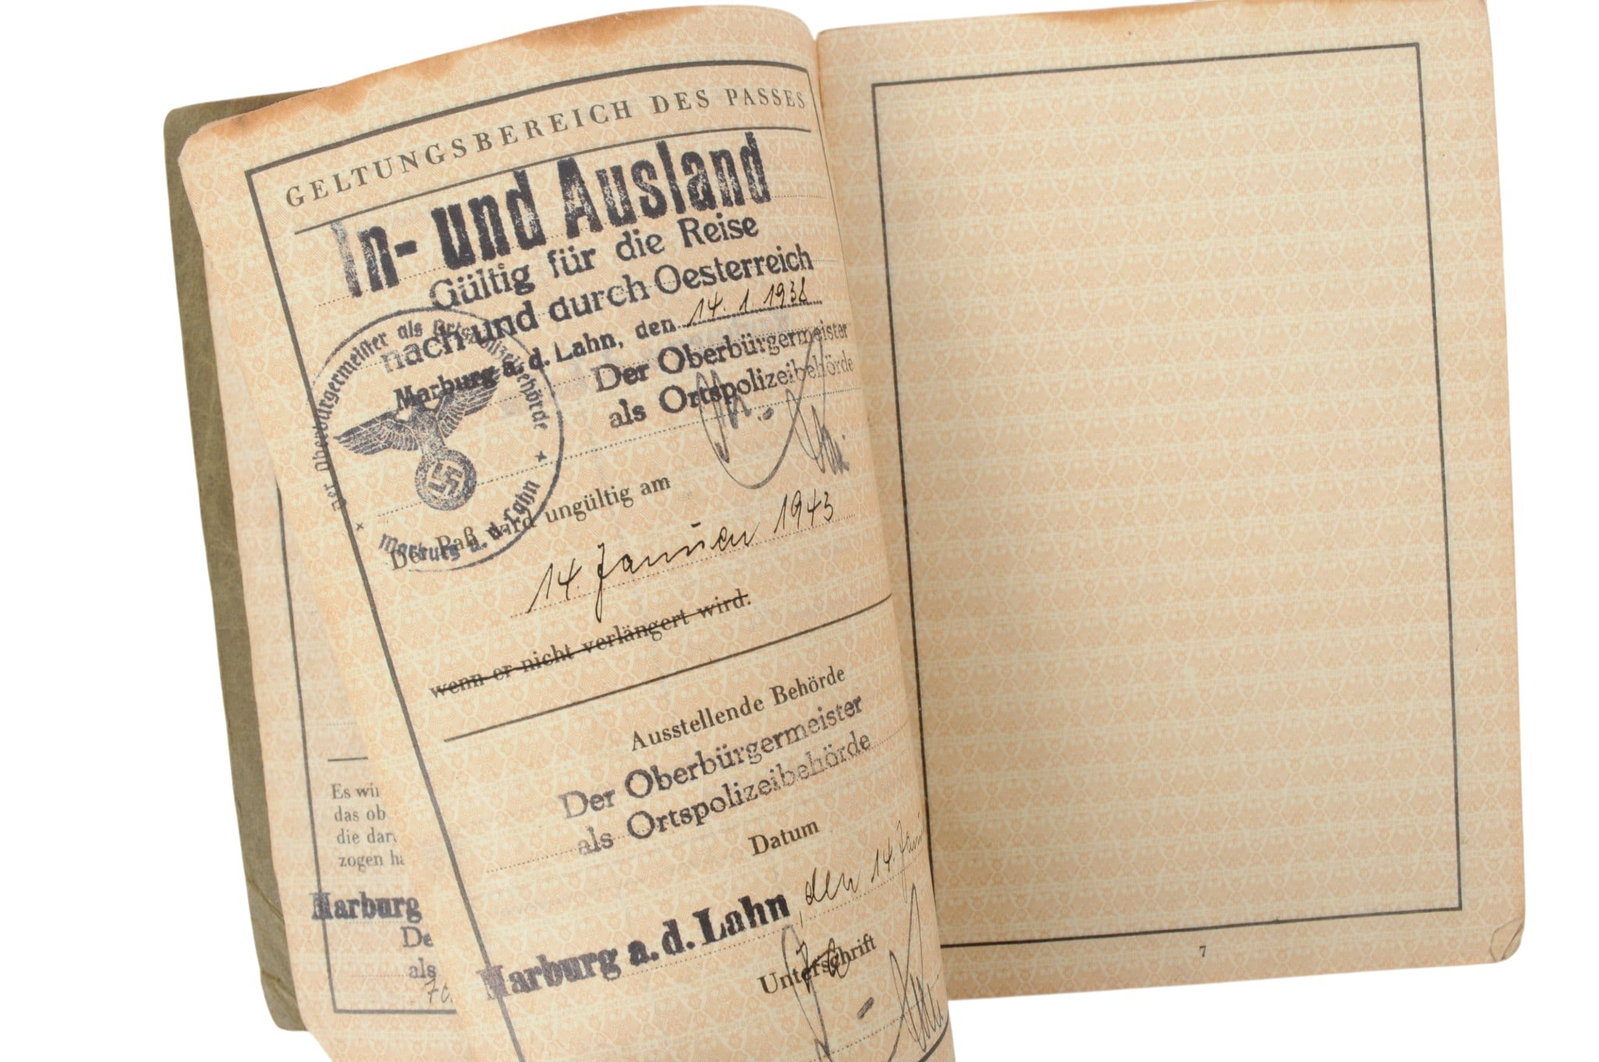 GELTUNGSBEREICH DES PASSES
In- und Ausland
Gültig für die Reise
nach und durch Oesterreich
Marburg a. d. Lahn, den 14. 1. 1938
Der Oberbürgermeister
als Ortspolizeibehörde
Der Oberbürgermeister als Ortspolizeibehörde
Marburg a. d. Lahn
Der Paß wird ungültig am
14. Januar 1943
wenn er nicht verlängert wird.
Ausstellende Behörde
Der Oberbürgermeister
als Ortspolizeibehörde
Datum
Marburg a. d. Lahn, den 14. Jan
Unterschrift
Es wi
das ob
die dar
zogen ha
Marburg
De
als
7